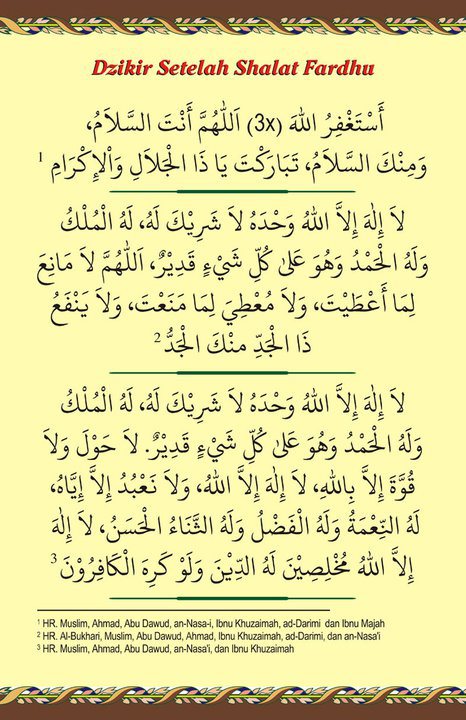 Dzikir Setelah Shalat Fardhu
أَسْتَغْفِرُ اللهَ (3x) اَللّٰهُمَّ أَنْتَ السَّلاَمُ،
وَمِنْكَ السَّلاَمُ، تَبَارَكْتَ يَا ذَا الْجَلاَلِ وَاْلإِكْرَامِ 1
لاَ إِلٰهَ إِلاَّ اللهُ وَحْدَهُ لاَ شَرِيْكَ لَهُ، لَهُ الْمُلْكُ
وَلَهُ الْحَمْدُ وَهُوَ عَلىٰ كُلِّ شَيْءٍ قَدِيْرٌ، اَللّٰهُمَّ لاَ مَانِعَ
لِمَا أَعْطَيْتَ، وَلاَ مُعْطِيَ لِمَا مَنَعْتَ، وَلاَ يَنْفَعُ
ذَا الْجَدِّ مِنْكَ الْجَدُّ 2
لاَ إِلٰهَ إِلاَّ اللهُ وَحْدَهُ لاَ شَرِيْكَ لَهُ، لَهُ الْمُلْكُ
وَلَهُ الْحَمْدُ وَهُوَ عَلىٰ كُلِّ شَيْءٍ قَدِيْرٌ. لاَ حَوْلَ وَلاَ
قُوَّةَ إِلاَّ بِاللهِ، لاَ إِلٰهَ إِلاَّ اللهُ، وَلاَ نَعْبُدُ إِلاَّ إِيَّاهُ،
لَهُ النِّعْمَةُ وَلَهُ الْفَضْلُ وَلَهُ الثَّنَاءُ الْحَسَنُ، لاَ إِلٰهَ
إِلاَّ اللهُ مُخْلِصِيْنَ لَهُ الدِّيْنَ وَلَوْ كَرِهَ الْكَافِرُوْنَ 3
1 HR. Muslim, Ahmad, Abu Dawud, an-Nasa-i, Ibnu Khuzaimah, ad-Darimi dan Ibnu Majah
2 HR. Al-Bukhari, Muslim, Abu Dawud, Ahmad, Ibnu Khuzaimah, ad-Darimi, dan an-Nasa'i
3 HR. Muslim, Ahmad, Abu Dawud, an-Nasa'i, dan Ibnu Khuzaimah